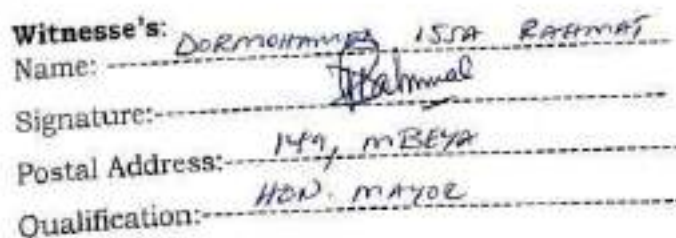 Witnesse's:
Name: DORMOHAMED ISSA RAHMAT
Signature: Rahmat
Postal Address: 149, MBEYA
Qualification: HON. MAYOR